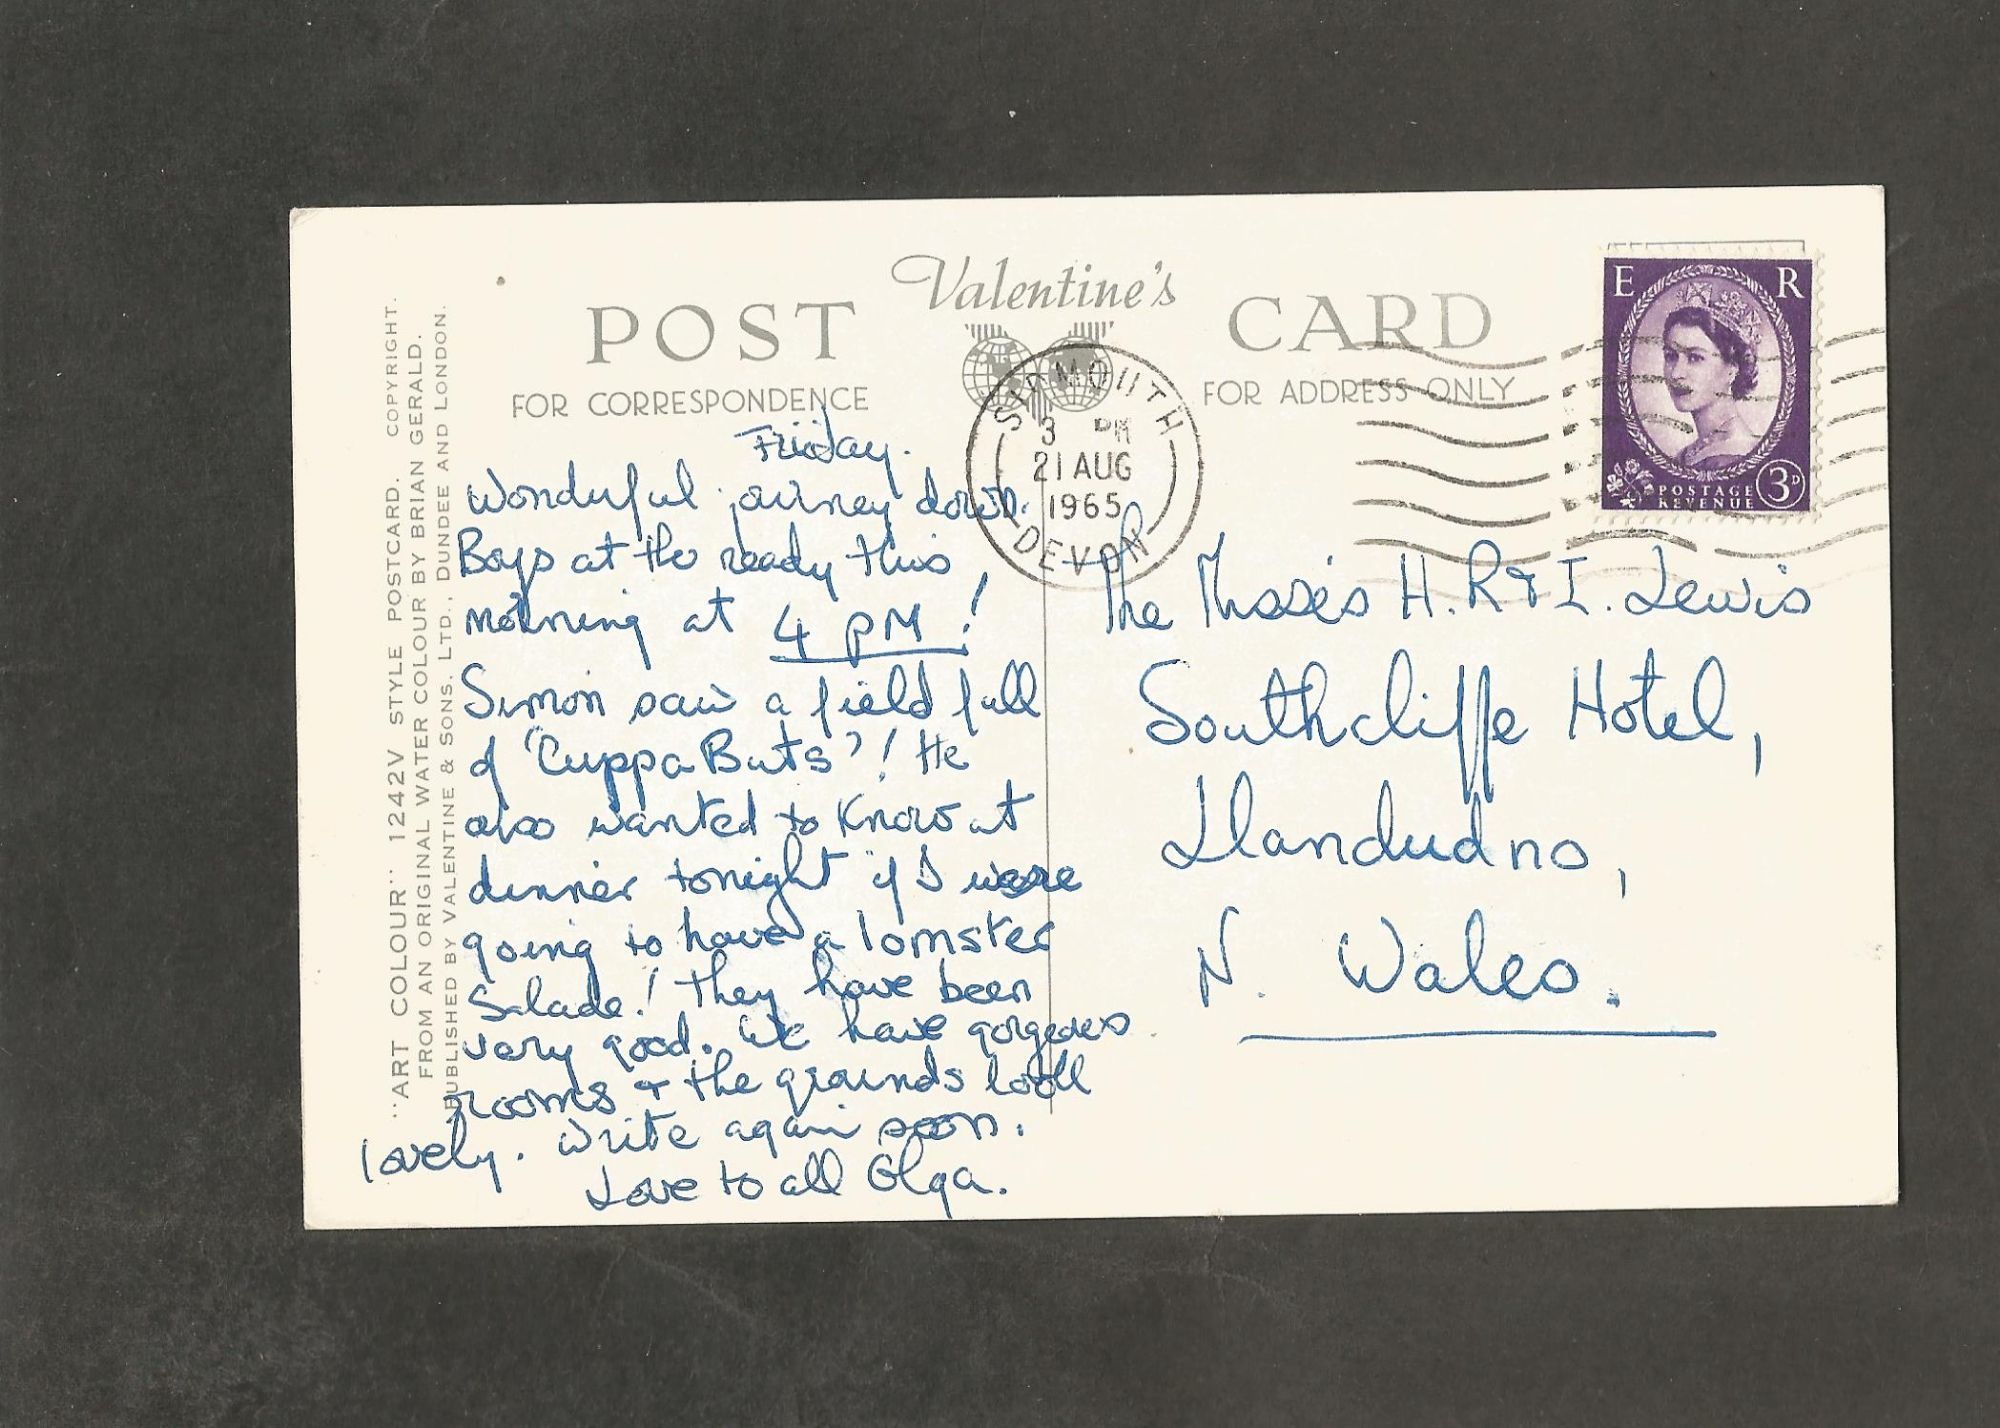 Valentine's
POST CARD
FOR CORRESPONDENCE
FOR ADDRESS ONLY
"ART COLOUR" 1242V STYLE POSTCARD. COPYRIGHT.
FROM AN ORIGINAL WATER COLOUR BY BRIAN GERALD.
PUBLISHED BY VALENTINE & SONS. LTD., DUNDEE AND LONDON.
SIDMOUTH
3 PM
21 AUG
1965
DEVON
E R
POSTAGE
REVENUE
3D
Friday.
Wonderful journey down.
Boys at the ready this
morning at 4 PM!
Simon saw a field full
of "Cuppa Buts"! He
also wanted to know at
dinner tonight if I were
going to have a lomster
Salade! They have been
very good. We have gorgeous
rooms & the grounds look
lovely. Write again soon.
Love to all Olga.
The H. R & I. Lewis
Southcliffe Hotel,
Llandudno,
N. Wales.